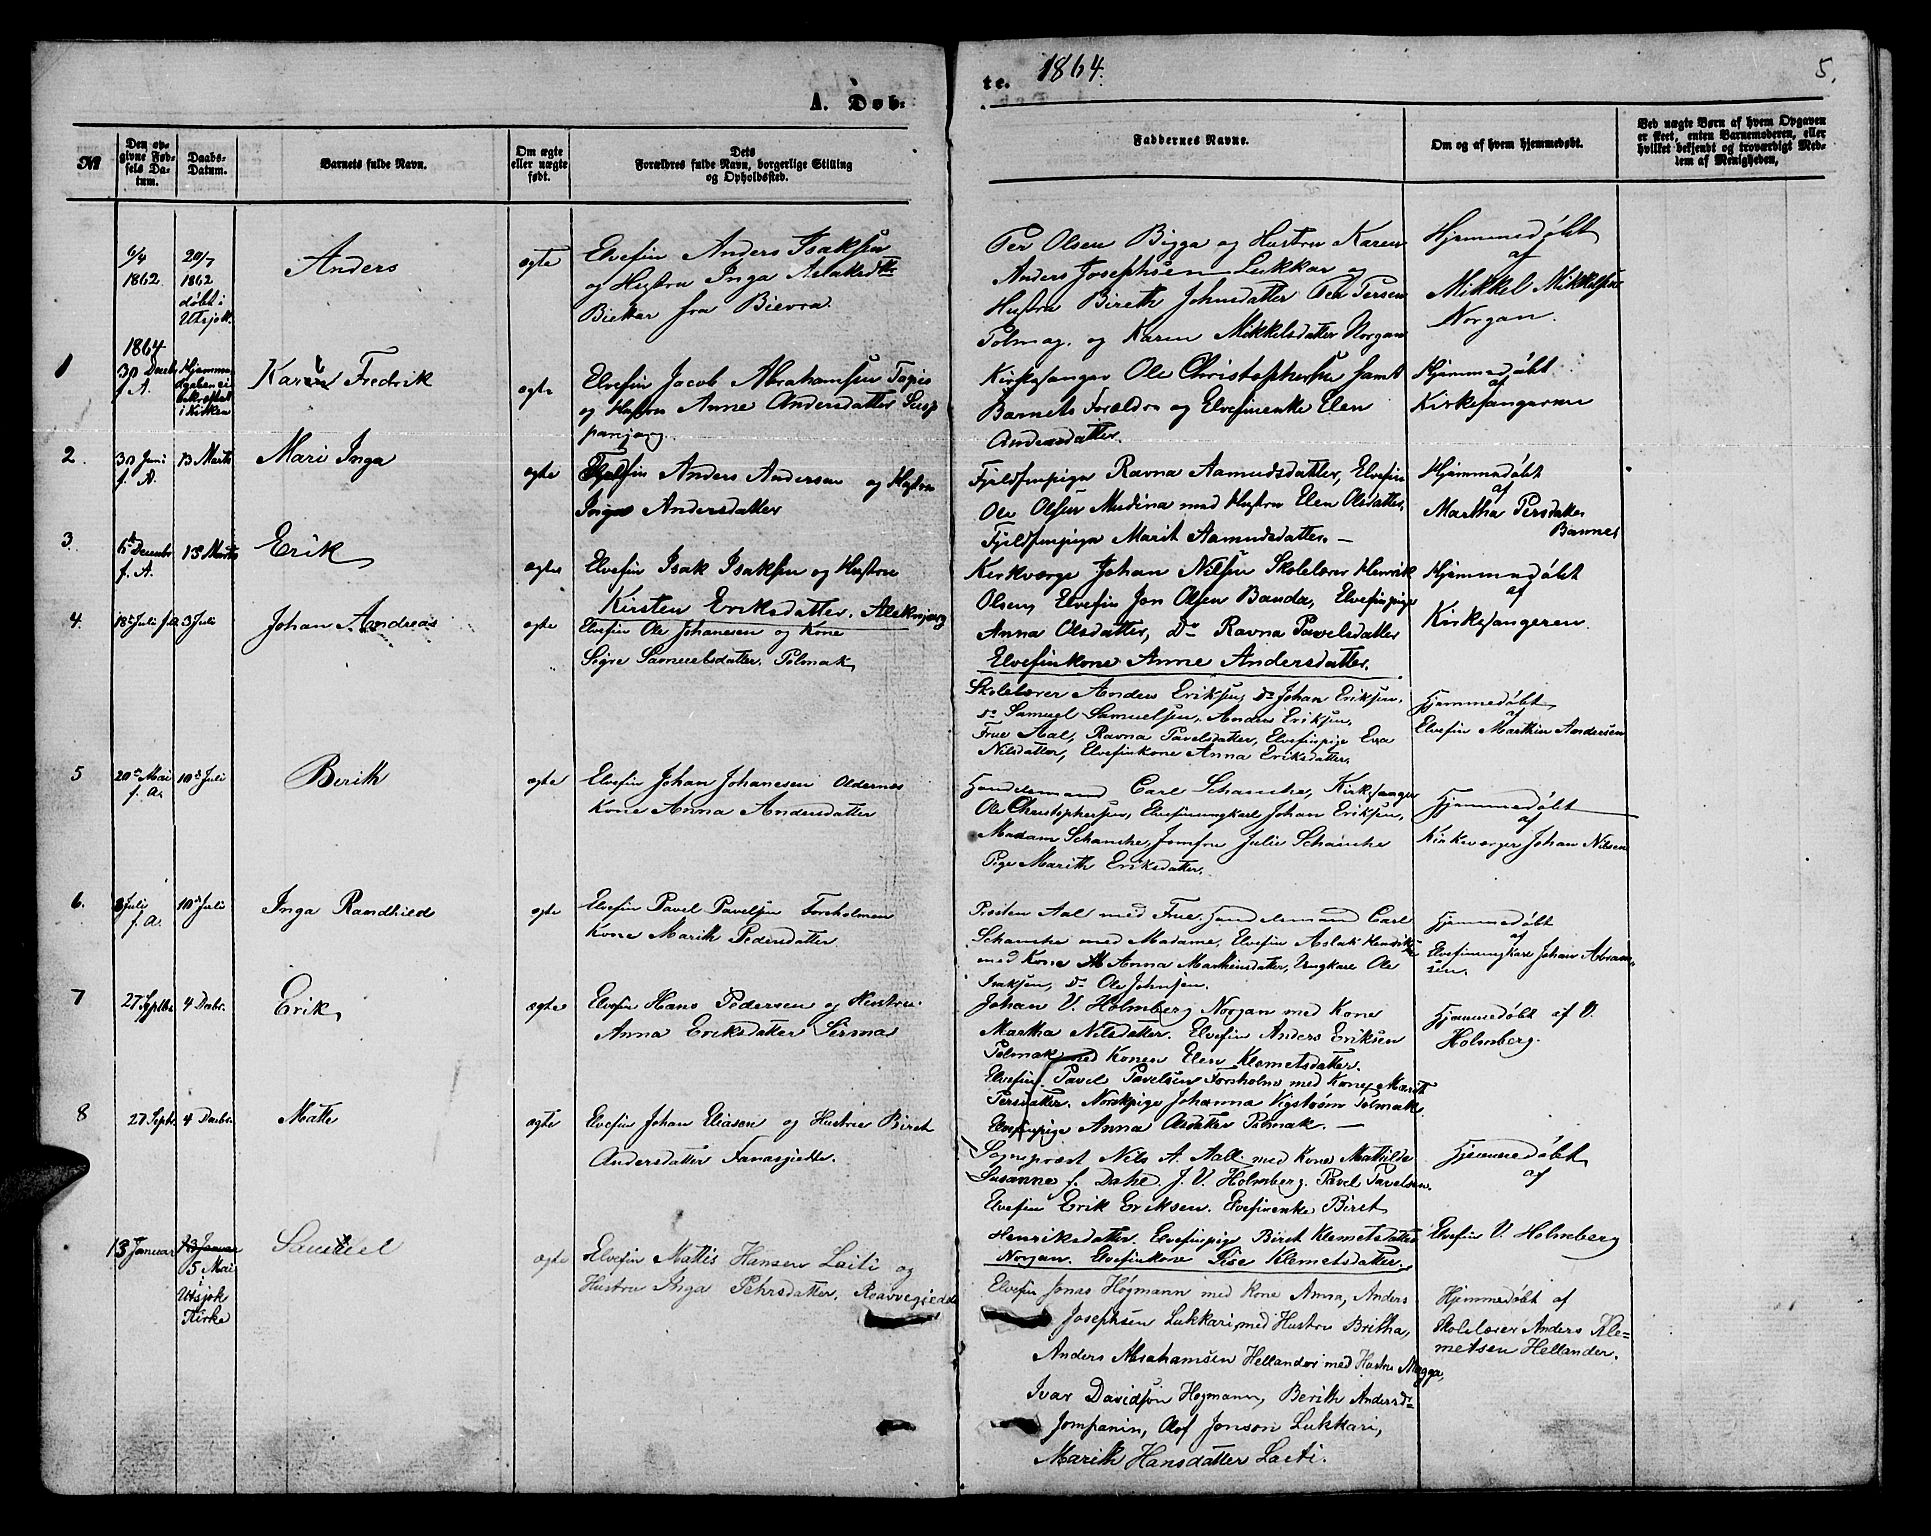 A. Døb-
te. 1864.
5.
No
Den op-
givne Fød-
sels Da-
tum.
Daabs-
Datum.
Barnets fulde Navn.
Om ægte
eller uægte
født.
Dets
Forældres fulde Navn, borgerlige Stilling
og Opholdssted.
Faddernes Navne.
Om og af hvem hjemmedøbt.
Ved uægte Børn af hvem Opgaven
er skeet, enten Barnemoderen, eller
hvilket bekjendt og troværdigt Med-
lem af Menigheden.
6/4
1862
20/7
1862
døbt i
Utsjok.
Anders
ægte
Elvefin Anders Isaksen
og Hustru Inga Aslaksdtr
Biekar fra Bievra.
Per Olsen Bigga og Hustru Karen
Anders Josephsen Lukkar og
Hustru Bireth Johnsdatter Per Persen
Polmag. og Karen Mikkelsdatter Norgan
Hjemmedøbt
af
Mikkel Mikkelsen
Norgan.
1
1864
30 Decbr
f. A.
Hjemme
daaben ei
bekræftet
i Kirken
Karen Fredrik
ægte
Elvefin Jacob Abrahamsen Tapis
og Hustru Anne Andersdatter Susp
panjarg.
Kirkesanger Ole Christophersen samt
Barnets Forældre og Elvefinenke Elen
Andersdatter.
Hjemmedøbt
af
Kirkesangeren
2.
30 Juni
f. A.
13 Marts
Mari Inga
ægte
Fjeldfin Anders Andersen og Hustru
Inga Andersdatter
Fjeldfinpige Ravna Aamundsdatter, Elvefin
Ole Olsen Mudina med Hustru Elen Olsdatter,
Fjeldfinpige Marit Aamundsdatter. —
Hjemmedøbt
af
Martha Persdatter
Bannes
3.
Decembr
f. A.
13 Marts
Erik
ægte
Elvefin Isak Isaksen og Hustru
Kirsten Eriksdatter. Aleknjarg
Kirkeværge Johan Nilsen Skolelærer Henrik
Olsen, Elvefin Jon Olsen Banda, Elvefinpige
Anna Olsdatter, Do Ravna Pavelsdatter
Elvefinkone Anne Andersdatter.
Hjemmedøbt
af
Kirkesangeren.
4.
18 Juli f.A.
3 Juli
Johan Andreas
ægte
Elvefin Ole Johanesen og Kone
Sigre Samuelsdatter. Polmak,
Skolelærer Anders Eriksen, do Johan Eriksen,
do Samuel Samuelsen. Anders Eriksen,
Frue Aal, Ravna Pavelsdatter, Elvefinpige Eva
Nilsdatter, Elvefinkone Anna Eriksdatter.
Hjemmedøbt
af
Elvefin Marthin Andersen
5
20de Mai
f. a.
10de Juli
Berith
ægte
Elvefin Johan Johanesen Oldernes
Kone Anna Andersdatter
Handelsmand Carl Schanche, Kirkesanger
Ole Christophersen, Elvefinungkarl Johan Eriksen,
Madam Schanche, Jomfru Julie Schanche
Pige Marith Eriksdatter.
Hjemmedøbt
af
Kirkeværger Johan Nilsen
6.
Juli
f. a.
10de Juli
Inga Randhild
ægte
Elvefin Pavel Pavelsen Forsholmen
Kone Marith Pedersdatter.
Presten Aal med Frue, Handelsmand Carl
Schanche med Madame, Elvefin Aslak Henriksen
med Kone Anna Mathiusdatter, Ungkare Ole
Isaksen, Do Ole Johnsen.
Hjemmedøbt
af
Elvefinungkare Johan Abram-
sen.
7
27 Septbr
4 Decbr.
Erik
ægte
Elvefin Hans Pedersen og Hustrue
Anna Eriksdatter Sirma
Johan V. Holmberg Norgan med Kone
Martha Nilsdatter. Elvefin Anders Eriksen
Polmak med Konen Elen Klemetsdatter.
Elvefin Pavel Pavelsen Forsholm med Kone Marit
Persdatter. Norskpige Johanna Vigstrøm Polmak.
Elvefinpige Anna Olsdatter Polmak. —
Hjemmedøbt af V.
Holmberg.
8
27 Septbr
4 Decbr.
Matte
ægte
Elvefin Johan Eliasen og Hustrue Biret
Andersdatter Fanasgiedde.
Sognepræst Nils A. Aall. med Kone Mathilde
Susanne f. Dahl. J. V. Holmberg. Pavel Pavelsen.
Elvefin Erik Eriksen. Elvefinenke Biret
Henriksdatter. Elvefinpige Biret Klemetsdatter
Norgan. Elvefinkone Lise Klemetsdatter.
Hjemmedøbt
af
Elvefin V. Holmberg
13 Januar
13 Januar
5 Mai
i
Utsjok
Kirke
Samuel
ægte
Elvefin Mattis Hansen Laiti og
Hustru Inga Pehrsdatter, Roavvegiedde
Elvefin Jonas Högmann med Kone Anna, Anders
Josephsen Lukkari, med Hustru Britha,
Anders Abrahamsen Hellander med Hustru Magga,
Ivar Davidson Högmann, Berith Andersd-
Jompanin, Olof Jonson Lukkari,
Marith Hansdatter Laiti.
Hjemmedøbt af
Skolelærer Anders Kle=
metsen Hellander.